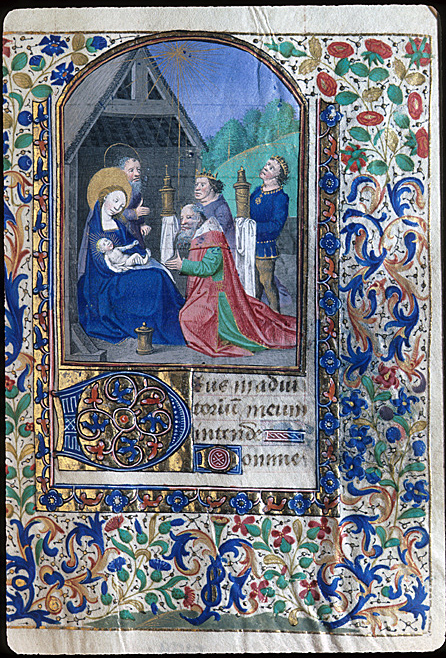 DEus in adiu
toriū meum
intende
Domine